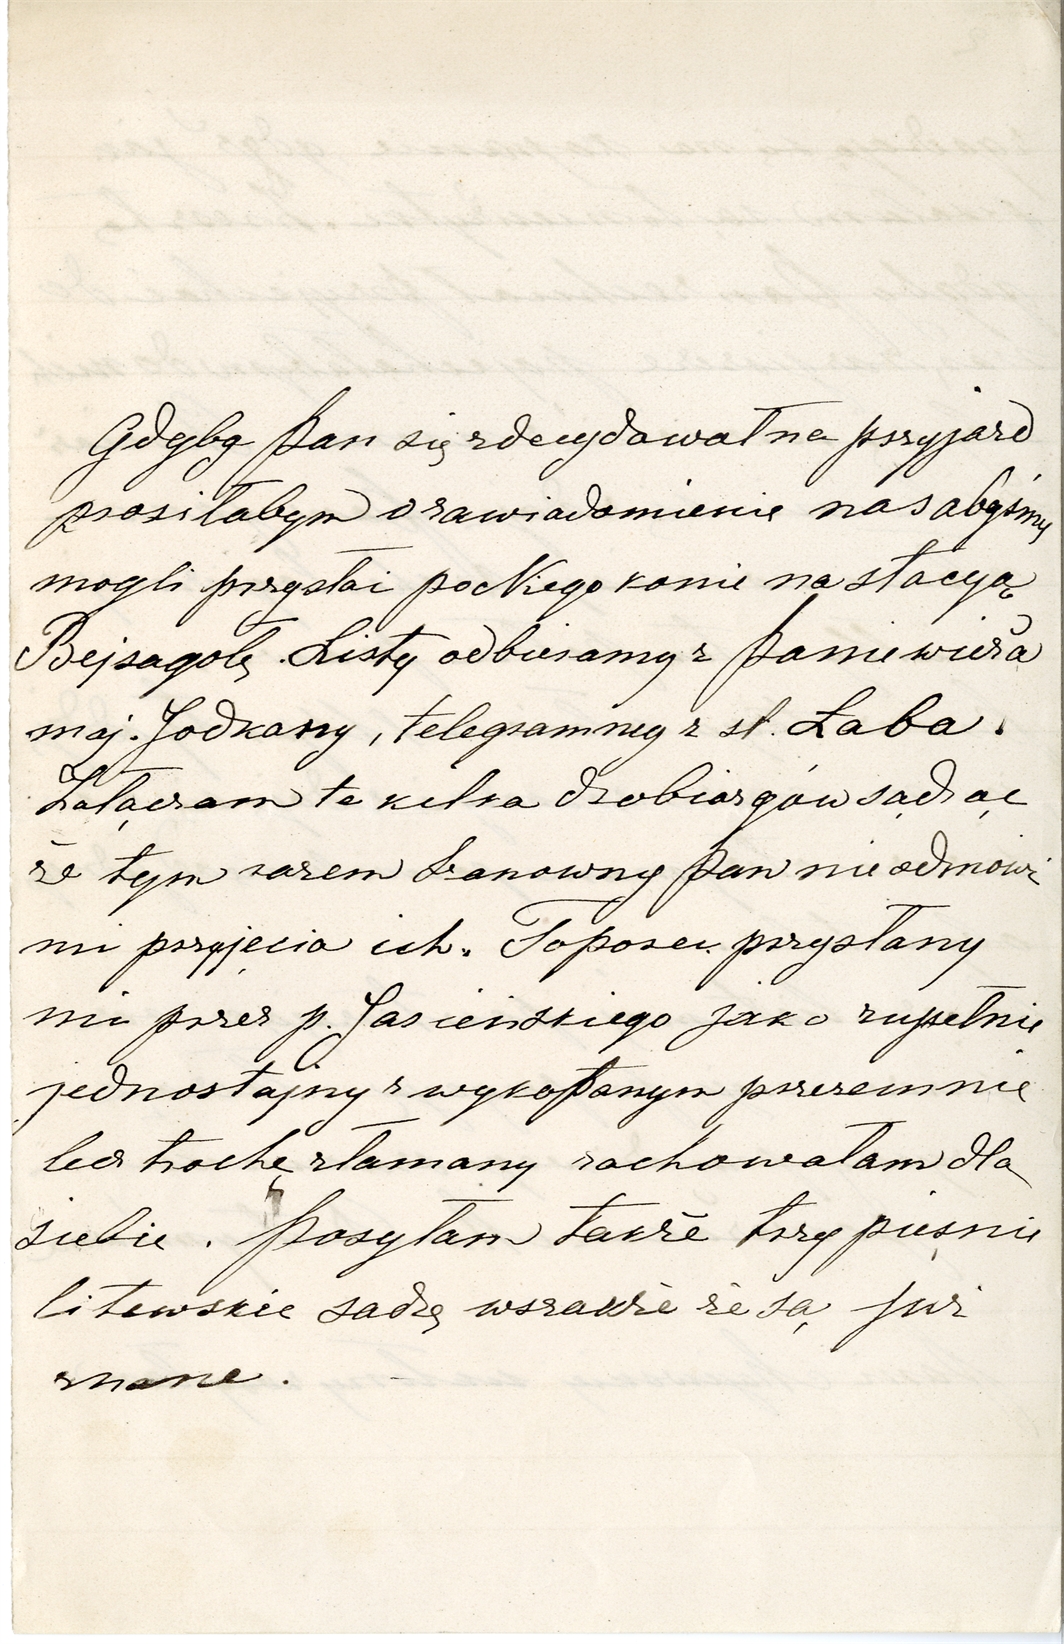 Gdyby Pan się zdecydował na przyjazd
prosiłabym o zawiadomienie nas abyśmy
mogli przysłać po Niego konie na stacyą
Bejsagołę. Listy odbieramy z Poniewieża
maj. Jodkany, telegrammy z st. Łaba.
Załączam te kilka drobiazgów sądząc
że tym razem Szanowny Pan nie odmówi
mi przyjęcia ich. Toporek przysłany
mi przez p. Jasieńskiego jako zupełnie
jednostajny z wykopanym przezemnie
lecz trochę złamany zachowałam dla
siebie. Posyłam także trzy pieśnie
litewskie sądzę wszakże że są już
znane.